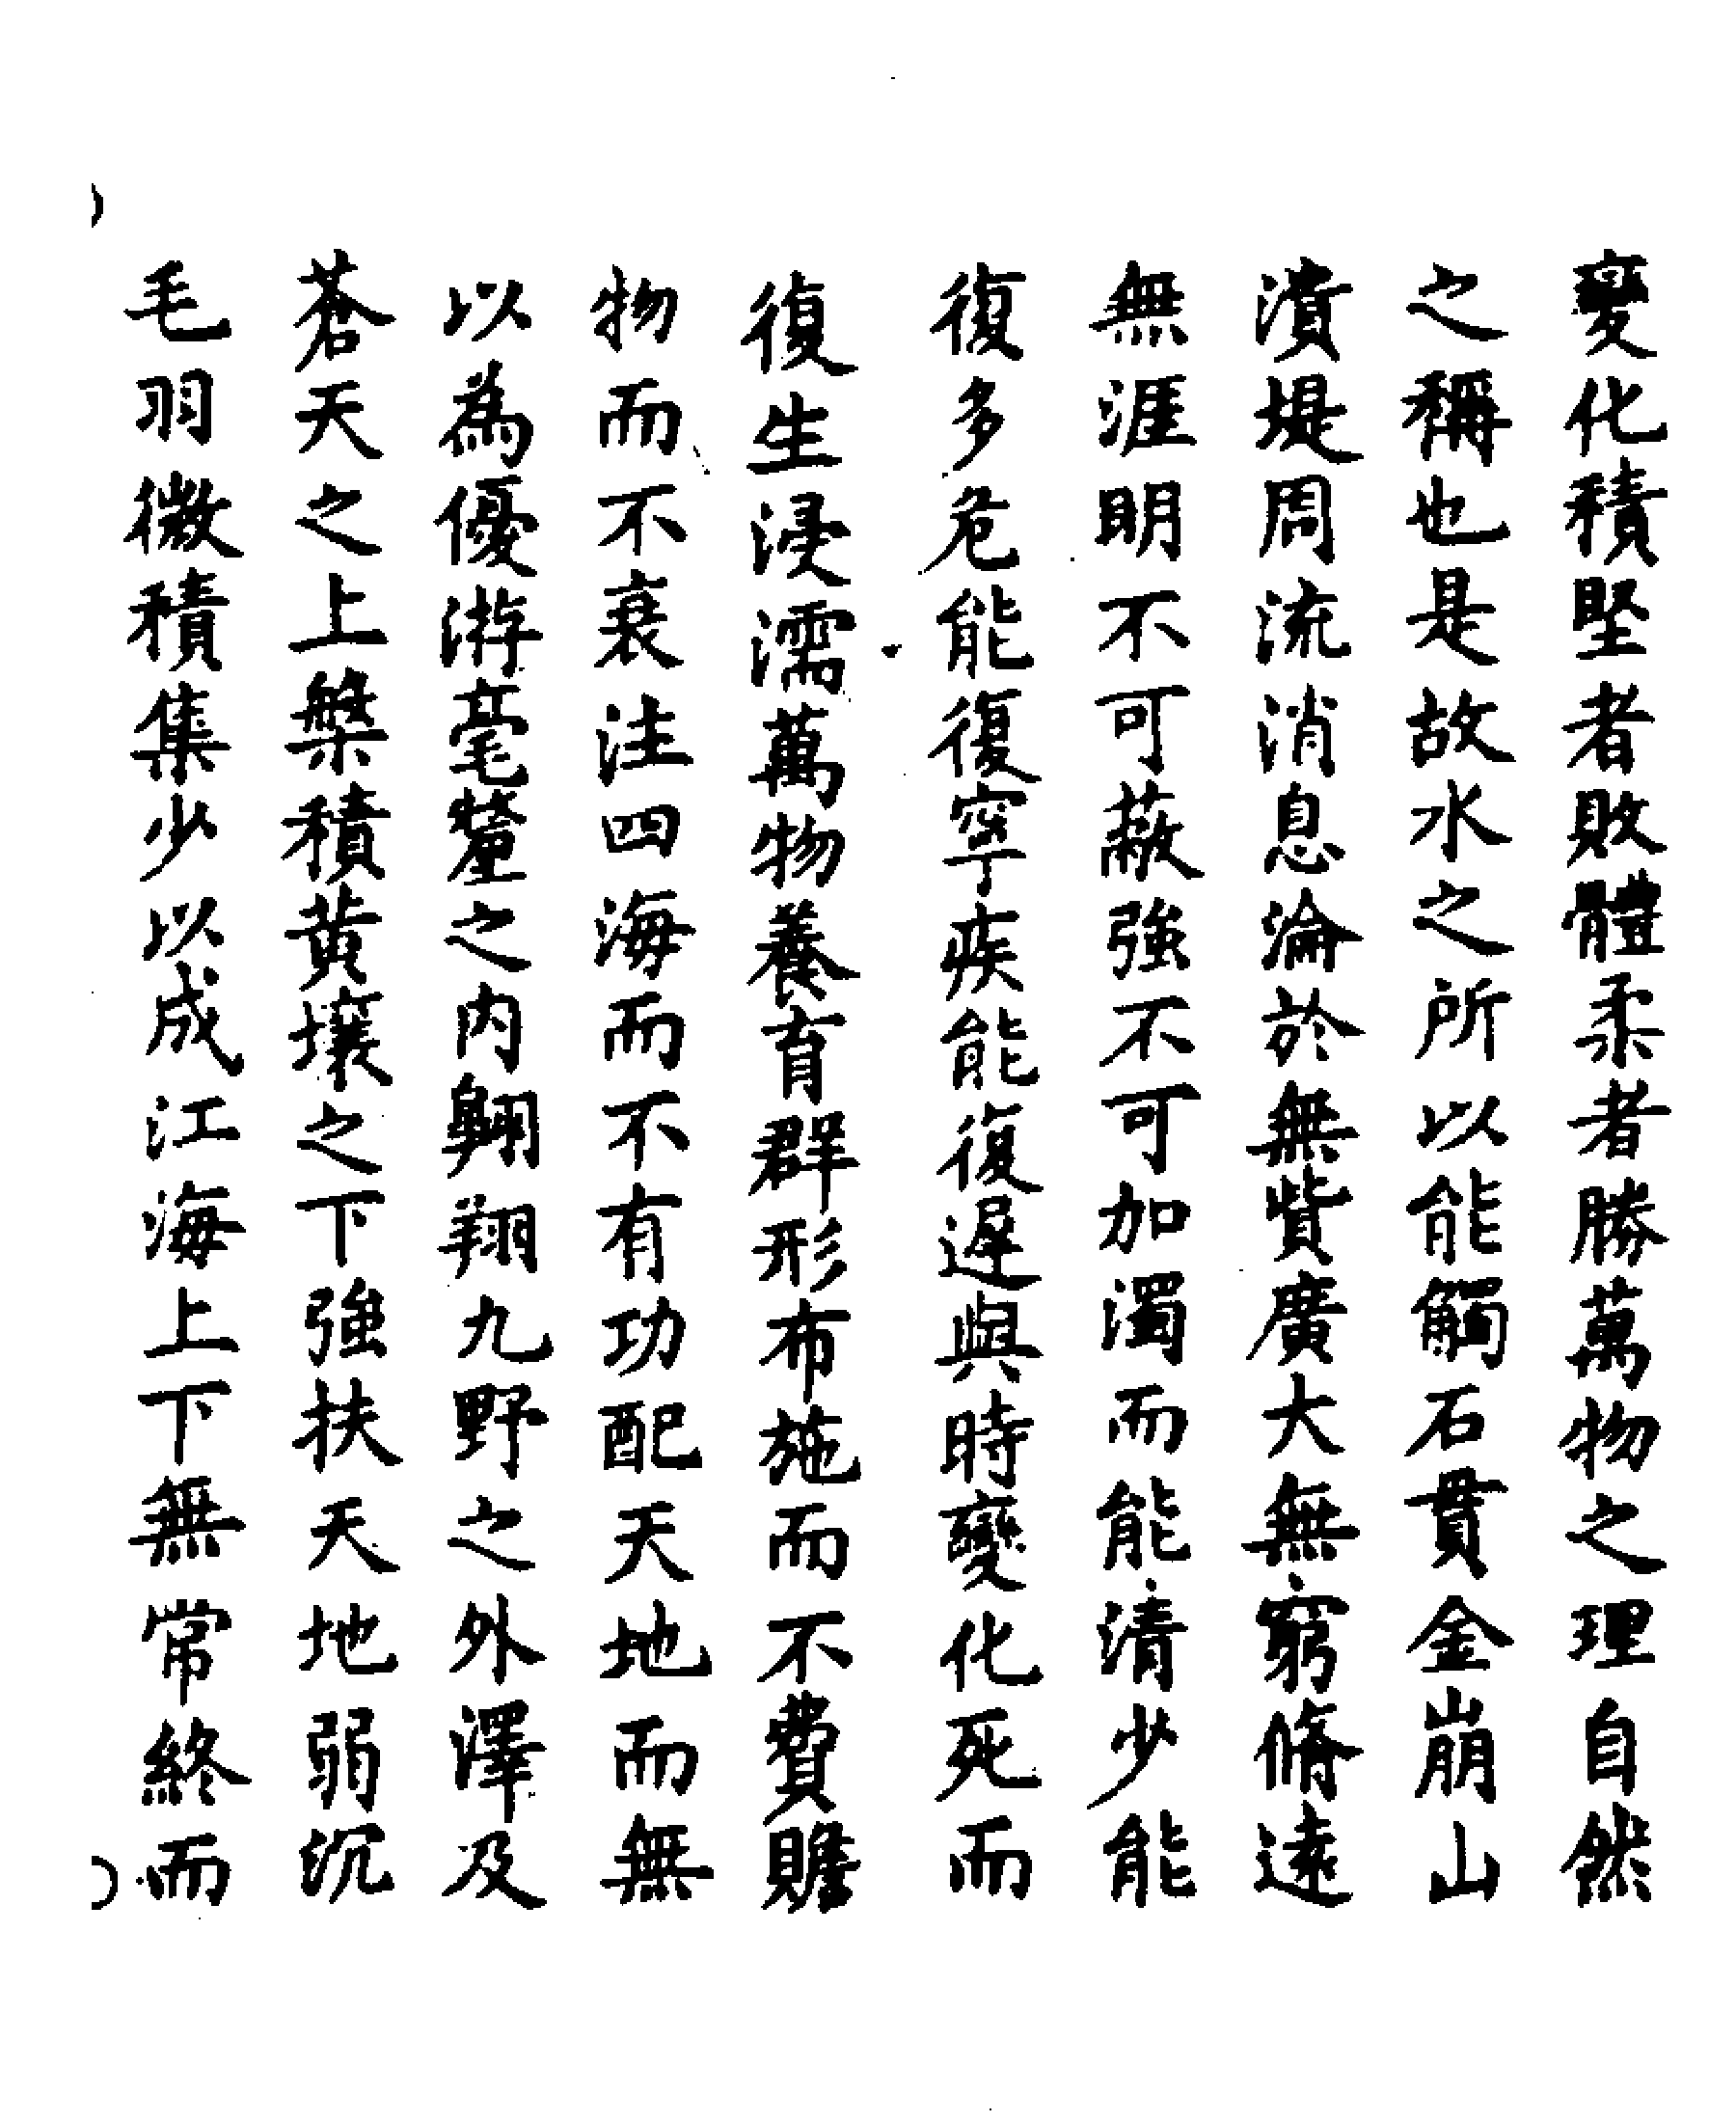 變化積堅者敗體柔者勝萬物之理自然
之稱也是故水之所以能觸石貫金崩山
潰堤周流消息淪於無貲廣大無窮脩遠
無涯明不可蔽強不可加濁而能清少能
復多危能復寧疾能復遲與時變化死而
復生浸濡萬物養育群形布施而不費贍
物而不衰注四海而不有功配天地而無
以為優游毫釐之內翺翔九野之外澤及
蒼天之上槃積黃壤之下強扶天地弱沉
毛羽微積集少以成江海上下無常終而